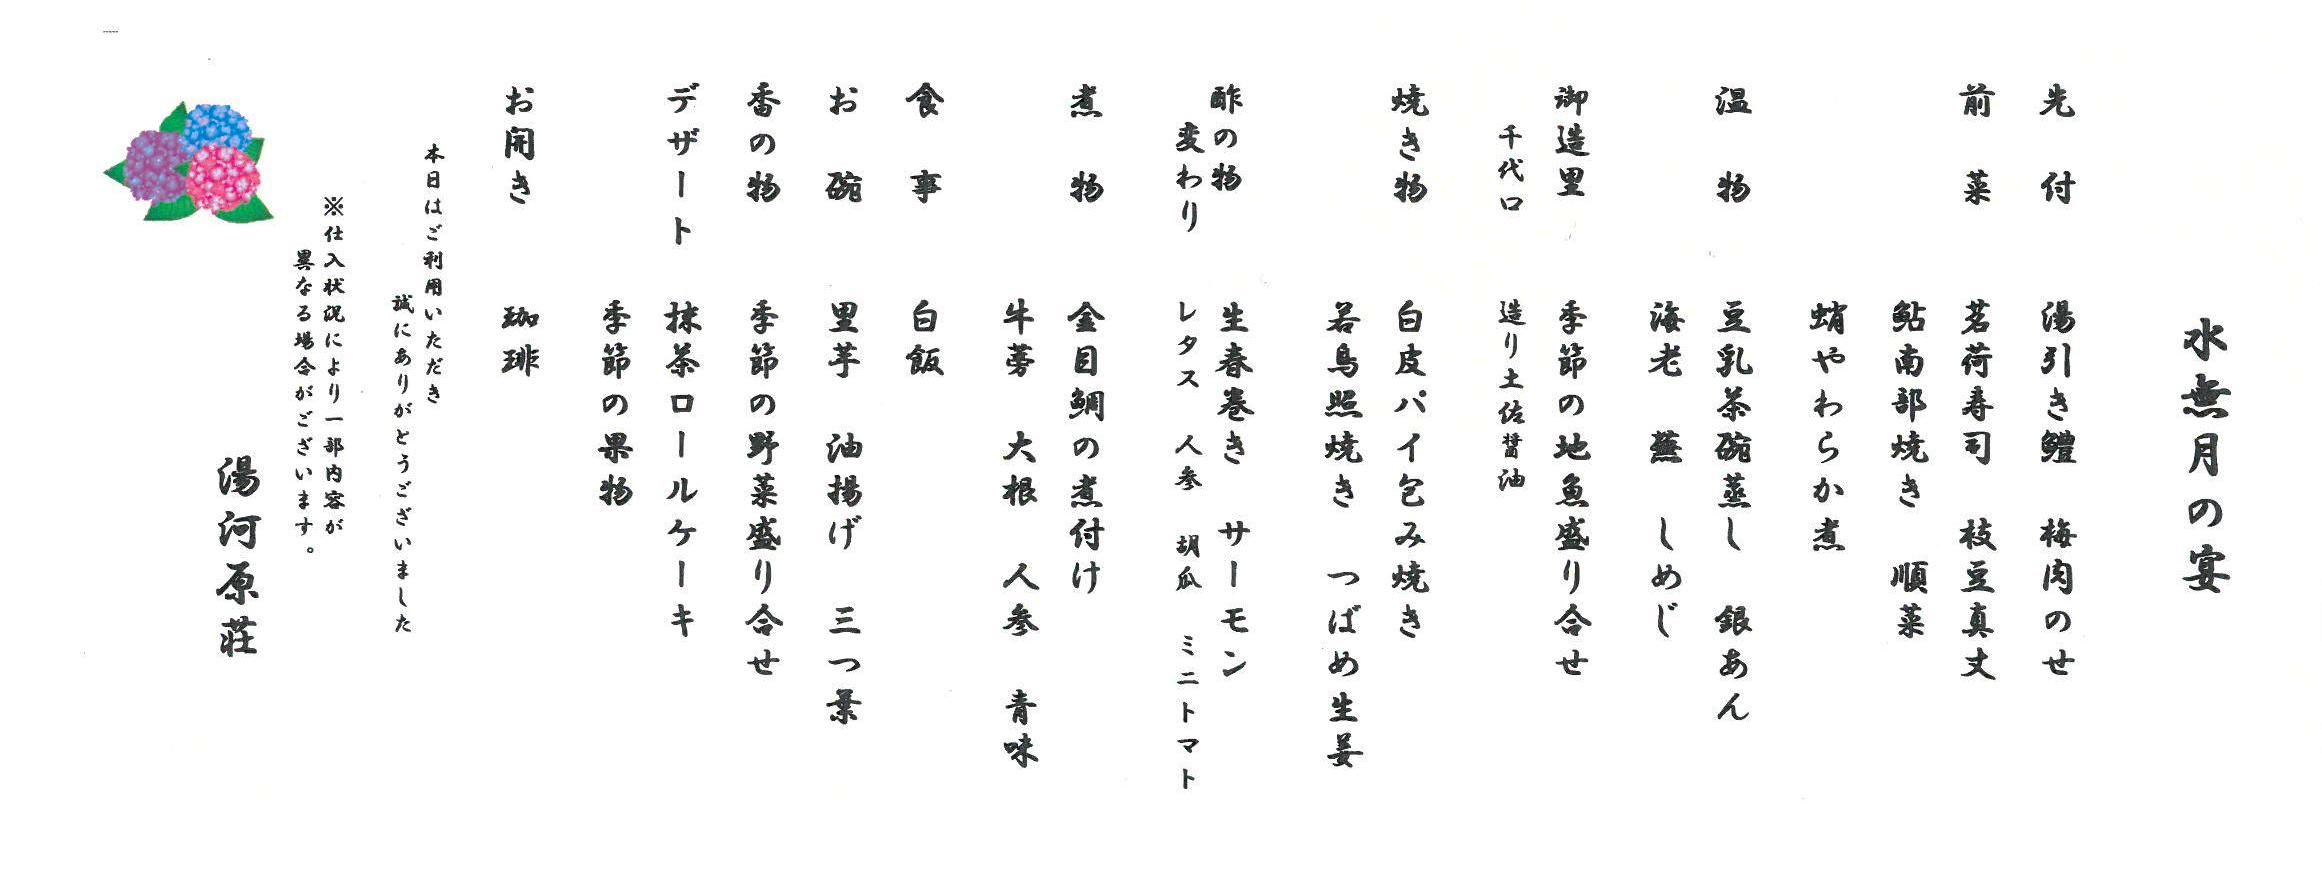 水無月の宴
先付 湯引き鱧 梅肉のせ
前菜 茗荷寿司 枝豆真丈
鮎南部焼き 順菜
蛸やわらか煮
温物 豆乳茶碗蒸し 銀あん
海老 蕪 しめじ
御造里 季節の地魚盛り合せ
千代口 造り土佐醤油
焼き物 白皮パイ包み焼き
若鳥照焼き つばめ生姜
酢の物 生春巻き サーモン
変わり レタス 人参 胡瓜 ミニトマト
煮物 金目鯛の煮付け
牛蒡 大根 人参 青味
食事 白飯
お碗 里芋 油揚げ 三つ葉
香の物 季節の野菜盛り合せ
デザート 抹茶ロールケーキ
季節の果物
お開き 珈琲
本日はご利用いただき
誠にありがとうございました
※仕入状況により一部内容が
異なる場合がございます。
湯河原荘